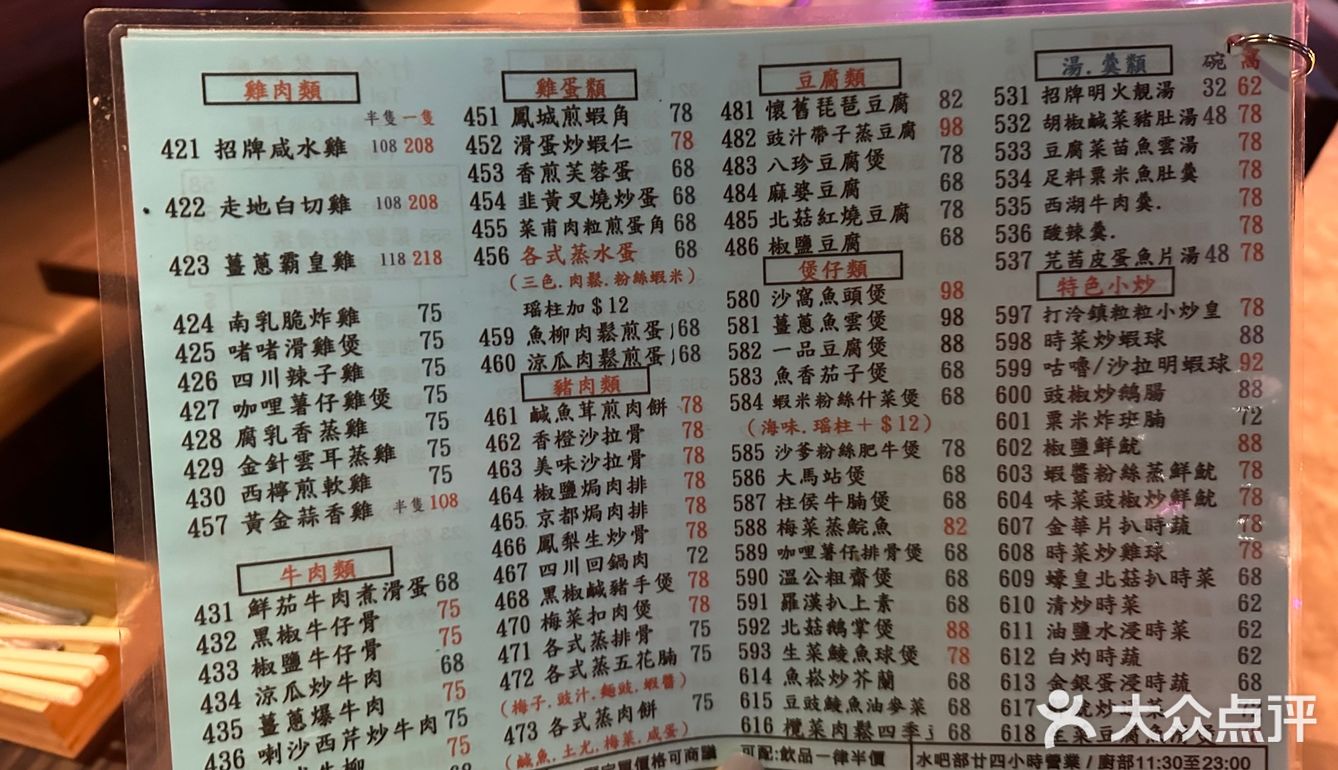 雞肉類
半隻 一隻
421 招牌咸水雞 108 208
422 走地白切雞 108 208
423 薑蔥霸皇雞 118 218
424 南乳脆炸雞 75
425 啫啫滑雞煲 75
426 四川辣子雞 75
427 咖哩薯仔雞煲 75
428 腐乳香蒸雞 75
429 金針雲耳蒸雞 75
430 西檸煎軟雞 75
457 黃金蒜香雞 半隻 108
牛肉類
431 鮮茄牛肉煮滑蛋 68
432 黑椒牛仔骨 75
433 椒鹽牛仔骨 75
434 涼瓜炒牛肉 68
435 薑蔥爆牛肉 75
436 喇沙西芹炒牛肉 75
75
雞蛋類
451 鳳城煎蝦角 78
452 滑蛋炒蝦仁 78
453 香煎芙蓉蛋 68
454 韭黃叉燒炒蛋 68
455 菜甫肉粒煎蛋角 68
456 各式蒸水蛋 68
(三色.肉鬆.粉絲蝦米)
瑤柱加$12
459 魚柳肉鬆煎蛋 68
460 涼瓜肉鬆煎蛋 68
豬肉類
461 鹹魚茸煎肉餅 78
462 香橙沙拉骨 78
463 美味沙拉骨 78
464 椒鹽焗肉排 78
465 京都焗肉排 78
466 鳳梨生炒骨 78
467 四川回鍋肉 72
468 黑椒鹹豬手煲 78
470 梅菜扣肉煲 78
471 各式蒸排骨 75
472 各式蒸五花腩 75
(梅子.豉汁.麵豉.蝦醬)
473 各式蒸肉餅 75
(鹹魚.土尤.梅菜.咸蛋)
豆腐類
481 懷舊琵琶豆腐 82
482 豉汁帶子蒸豆腐 98
483 八珍豆腐煲 78
484 麻婆豆腐 68
485 北菇紅燒豆腐 78
486 椒鹽豆腐 68
煲仔類
580 沙窩魚頭煲 98
581 薑蔥魚雲煲 98
582 一品豆腐煲 88
583 魚香茄子煲 68
584 蝦米粉絲什菜煲 68
(海味.瑤柱+$12)
585 沙爹粉絲肥牛煲 78
586 大馬站煲 68
587 柱侯牛腩煲 68
588 梅菜蒸鯇魚 82
589 咖哩薯仔排骨煲 68
590 溫公粗齋煲 68
591 羅漢扒上素 68
592 北菇鵝掌煲 88
593 生菜鯪魚球煲 78
614 魚崧炒芥蘭 68
615 豆豉鯪魚油麥菜 68
616 欖菜肉鬆四季 68
湯.羹類 碗 窩
531 招牌明火靚湯 32 62
532 胡椒鹹菜豬肚湯 48 78
533 豆腐菜苗魚雲湯 78
534 足料粟米魚肚羹 78
535 西湖牛肉羹. 78
536 酸辣羹. 78
537 芫茜皮蛋魚片湯 48 78
特色小炒
597 打冷鎮粒粒小炒皇 78
598 時菜炒蝦球 88
599 咕嚕/沙拉明蝦球 92
600 豉椒炒鵝腸 88
601 粟米炸班腩 72
602 椒鹽鮮魷 88
603 蝦醬粉絲蒸鮮魷 78
604 味菜豉椒炒鮮魷 78
607 金華片扒時蔬 78
608 時菜炒雞球 78
609 蠔皇北菇扒時菜 68
610 清炒時菜 62
611 油鹽水浸時菜 62
612 白灼時蔬 62
613 金銀蛋浸時蔬 68
617
618
價格可商議
可配:飲品一律半價
水吧部廿四小時營業/廚部11:30至23:00
大众点评